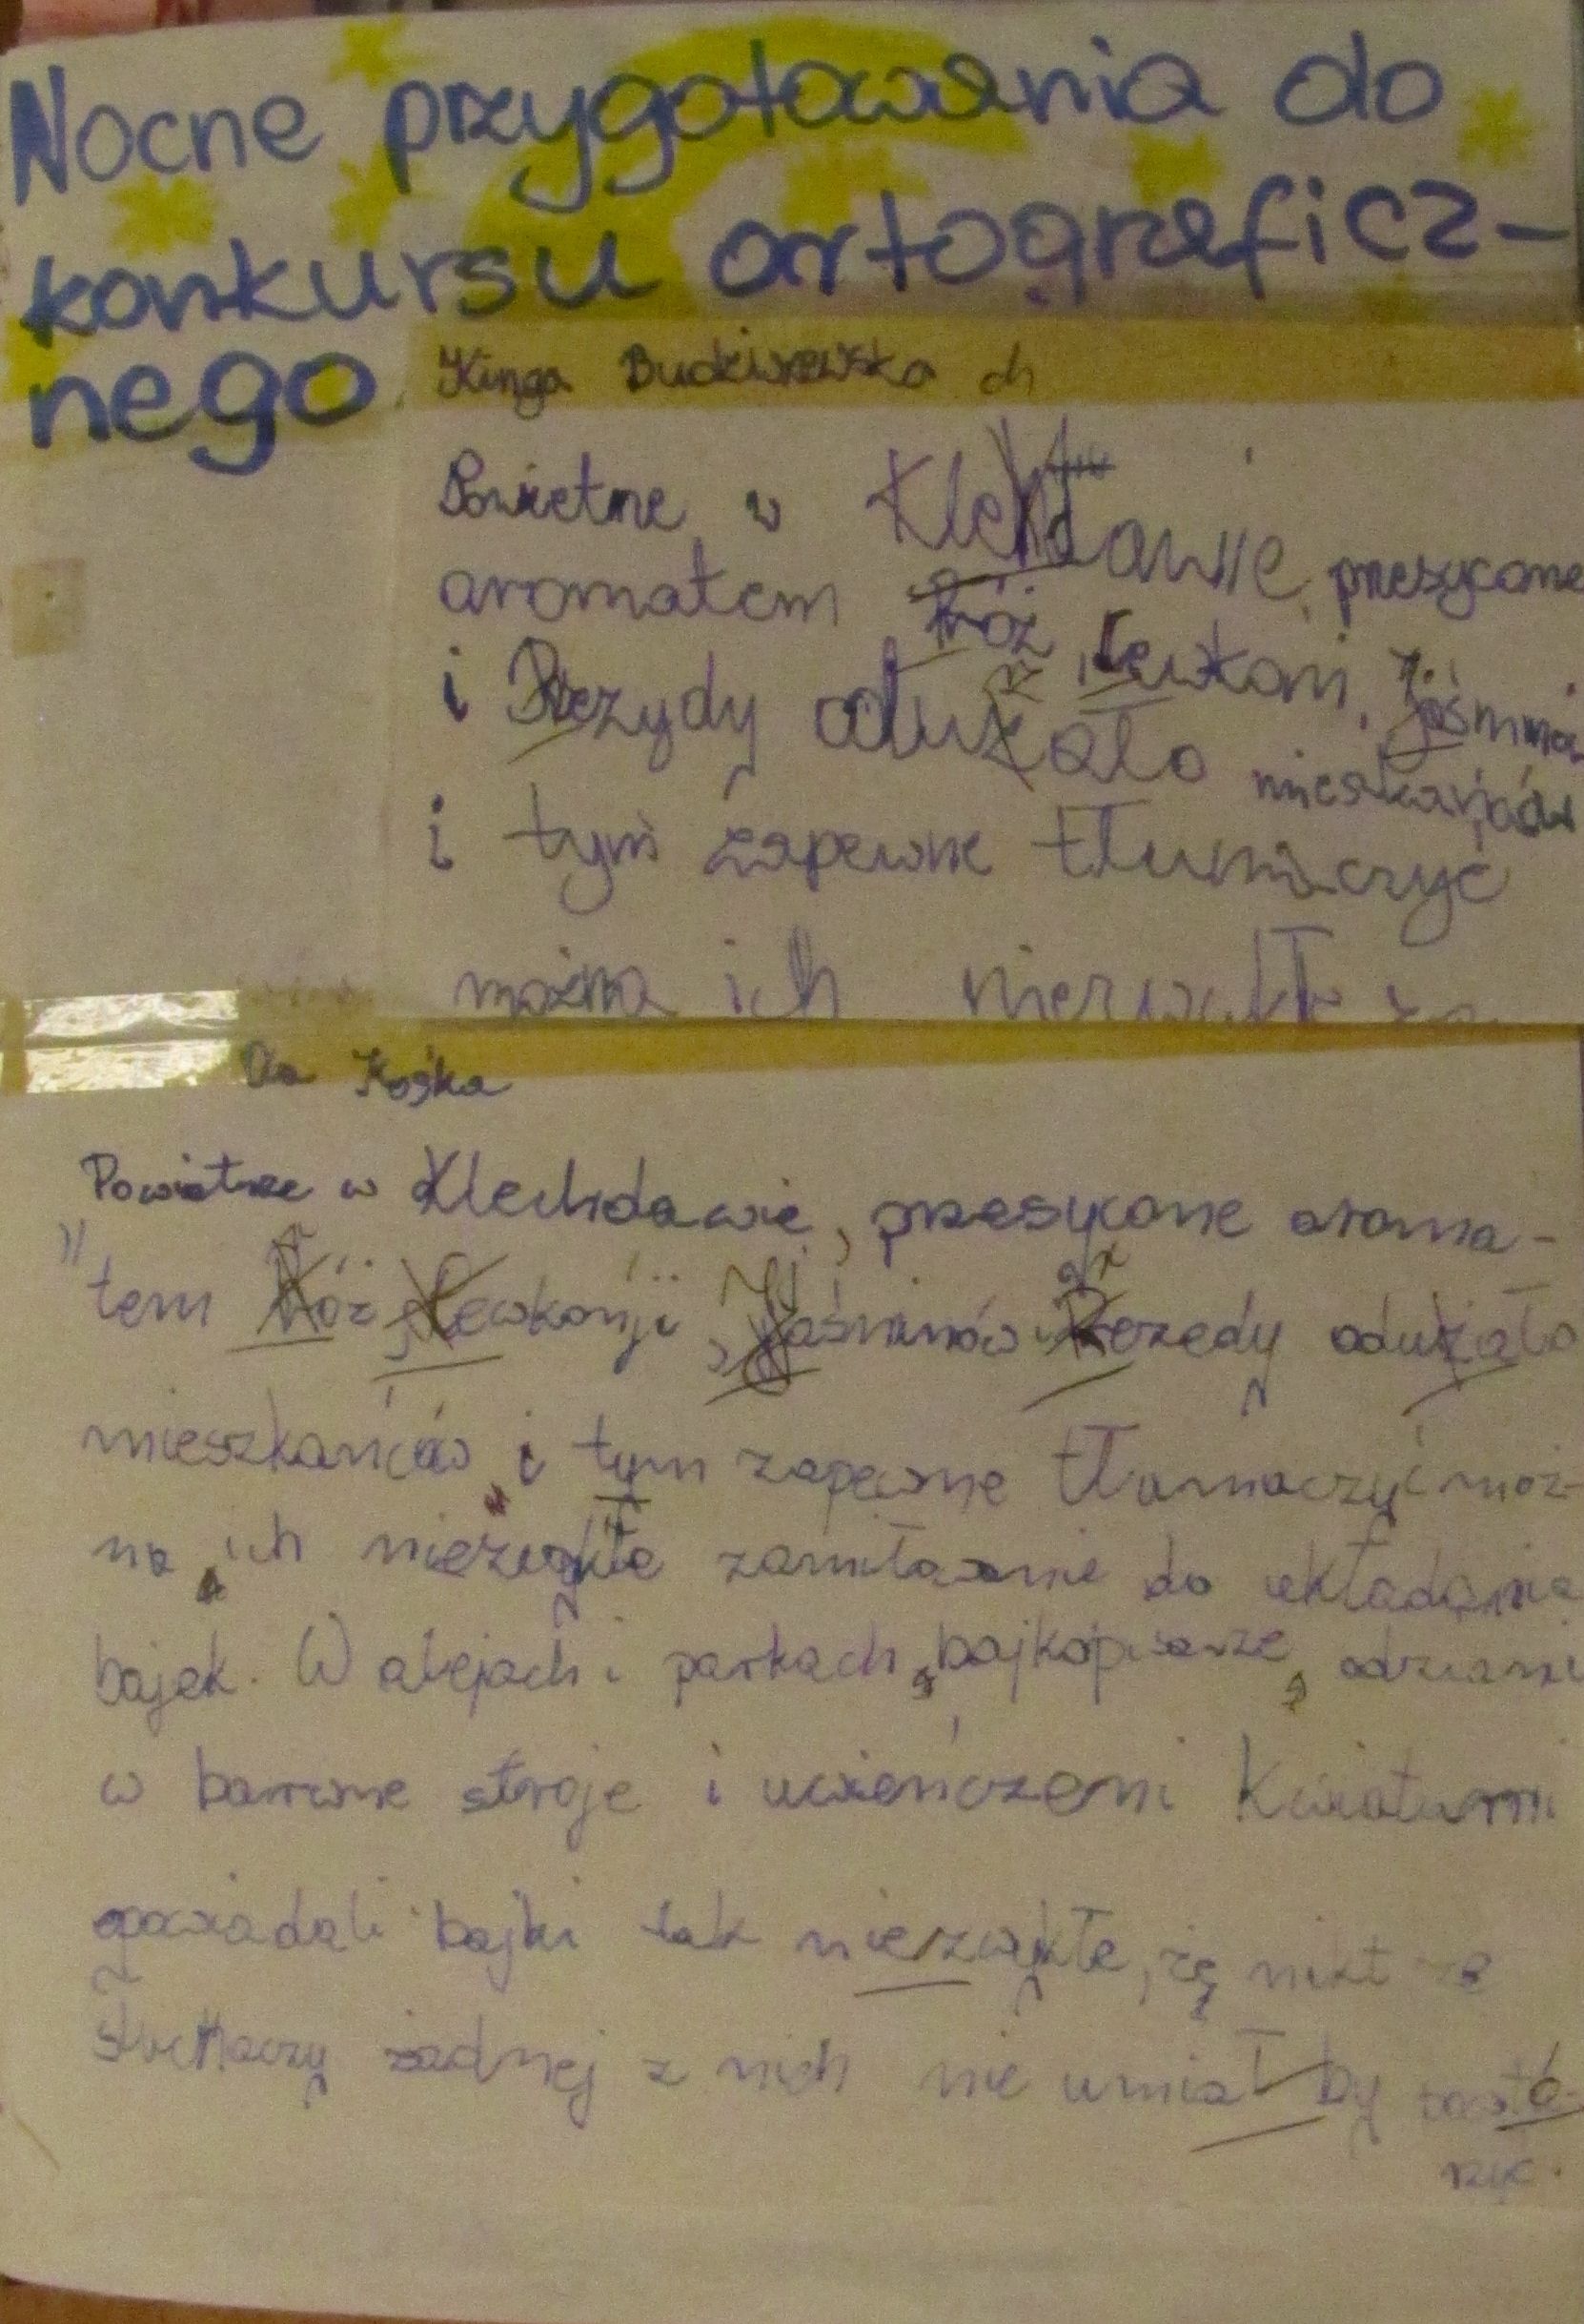 Nocne przygotowania do
konkursu ortograficz-
nego
Kinga
Powietrze w
aromatem róż lewkoni,
i Rezydy odurzało
i tym zapewne tłumaczyć
można ich
Ola Kośka
Powietrze w Klechdawie, przesycone aroma-
tem róż, lewkonji, jaśminów i rezedy odurzało
mieszkańców i tym zapewne tłumaczyć moż-
na ich niezwykłe zamiłowanie do układania
bajek. W alejach i parkach bajkopisarze, odziani
w barwne stroje i uwieńczeni kwiatami
opowiadali bajki tak niezwykłe, że nikt ze
słuchaczy żadnej z nich nie umiał by powtó-
rzyć.